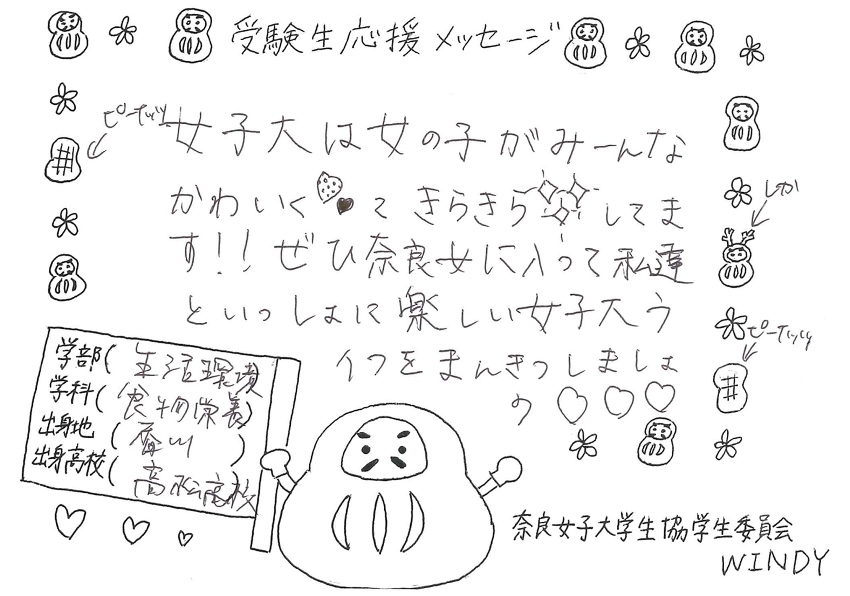 受験生応援メッセージ
ピーナッツ
女子大は女の子がみーんな
かわいくてきらきらしてま
す!!ぜひ奈良女に入って私達
といっしょに楽しい女子大ラ
イフをまんきつしましょ
う♡♡♡
しか
ピーナッツ
学部(生活環境
学科(食物栄養)
出身地(香川)
出身高校(高松高校
奈良女子大学生協学生委員会
WINDY